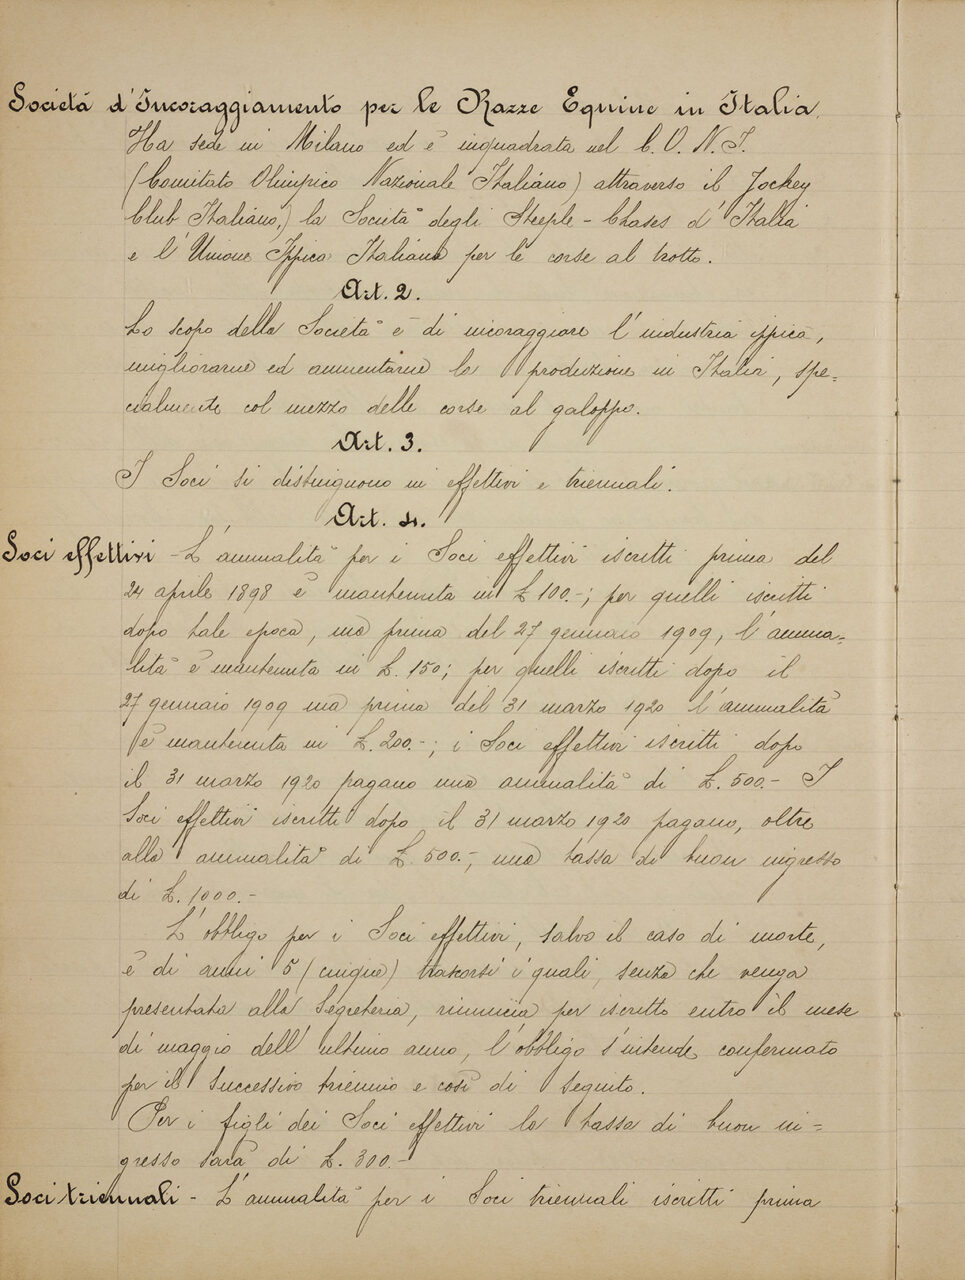 Società d'Incoraggiamento per le Razze Equine in Italia.
Ha sede in Milano ed è inquadrata nel C.O.N.I.
(Comitato Olimpico Nazionale Italiano) attraverso il Jockey
Club Italiano,) la Società degli Steeple-Chases d'Italia
e l'Unione Ippica Italiana per le corse al trotto.
Art. 2.
Lo scopo della Società è di incoraggiare l'industria ippica,
migliorarne ed aumentarne la produzione in Italia, spe=
cialmente col mezzo delle corse al galoppo.
Art. 3.
I Soci si distinguono in effettivi e triennali.
Art. 4.
Soci effettivi - L'annualità per i Soci effettivi iscritti prima del
24 aprile 1898 è mantenuta in £ 100.-; per quelli iscritti
dopo tale epoca, ma prima del 27 gennaio 1909, l'annua=
lità è mantenuta in £. 150; per quelli iscritti dopo il
27 gennaio 1909 ma prima del 31 marzo 1920 l'annualità
è mantenuta in £. 200.-; i Soci effettivi iscritti dopo
il 31 marzo 1920 pagano una annualità di £. 500.- I
Soci effettivi iscritti dopo il 31 marzo 1920 pagano, oltre
alla annualità di £. 500.-, una tassa di buon ingresso
di £. 1000.-
L'obbligo per i Soci effettivi, salvo il caso di morte,
è di anni 5 (cinque) trascorsi i quali, senza che venga
presentata alla Segreteria, rinuncia per iscritto entro il mese
di maggio dell'ultimo anno, l'obbligo s'intende confermato
per il successivo triennio e così di seguito.
Per i figli dei Soci effettivi la tassa di buon in=
gresso sarà di £. 300.-
Soci triennali - L'annualità per i Soci triennali iscritti prima